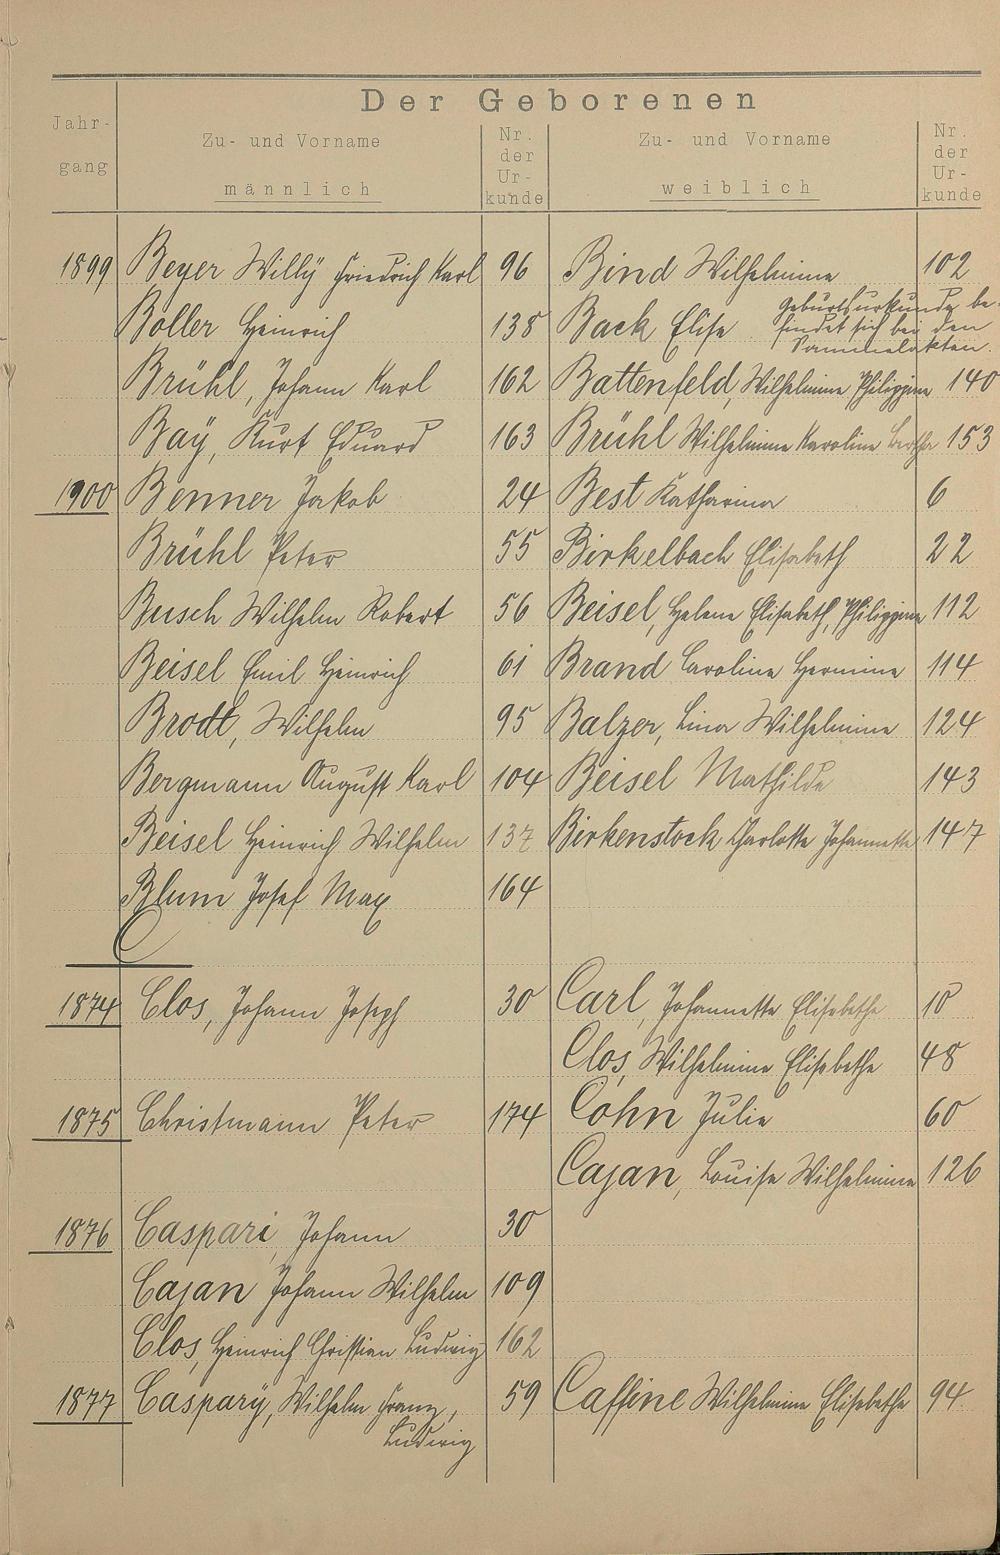 Der Geborenen
Jahr-
gang
Zu- und Vorname
männlich
Nr.
der
Ur-
kunde
Zu- und Vorname
weiblich
Nr.
der
Ur-
kunde
1899 Beyer Willÿ Friedrich Karl 96 Bind Wilhelmine 102
Boller Heinrich 138 Back Elise Geburtsurkunde be-
findet sich bei den
Sammelakten.
Brühl, Johann Karl 162 Battenfeld, Wilhelmine Philippine 140
Baÿ, Kurt Eduard 163 Brühl Wilhelmine Karoline Bertha 153
1900 Benner Jakob 24 Best Katharina 6
Brühl Peter 55 Birkelbach Elisabeth 22
Busch Wilhelm Robert 56 Beisel, Helene Elisabeth, Philippine 112
Beisel Emil Heinrich 61 Brand Caroline Hermine 114
Brodt, Wilhelm 95 Balzer, Lina Wilhelmine 124
Bergmann August Karl 104 Beisel Mathilde 143
Beisel Heinrich Wilhelm 137 Birkenstock Charlotte Johannette 147
Blum Josef Max 164
C
1874 Clos, Johann Joseph 30 Carl, Johannette Elisabethe 18
Clos, Wilhelmine Elisabethe 48
1875 Christmann Peter 174 Cohn Julie 60
Cajan, Louise Wilhelmine 126
1876 Caspari, Johann 30
Cajan Johann Wilhelm 109
Clos, Heinrich Christian Ludwig 162
1877 Casparÿ, Wilhelm Franz, 59 Caffine Wilhelmine Elisabethe 94
Ludwig